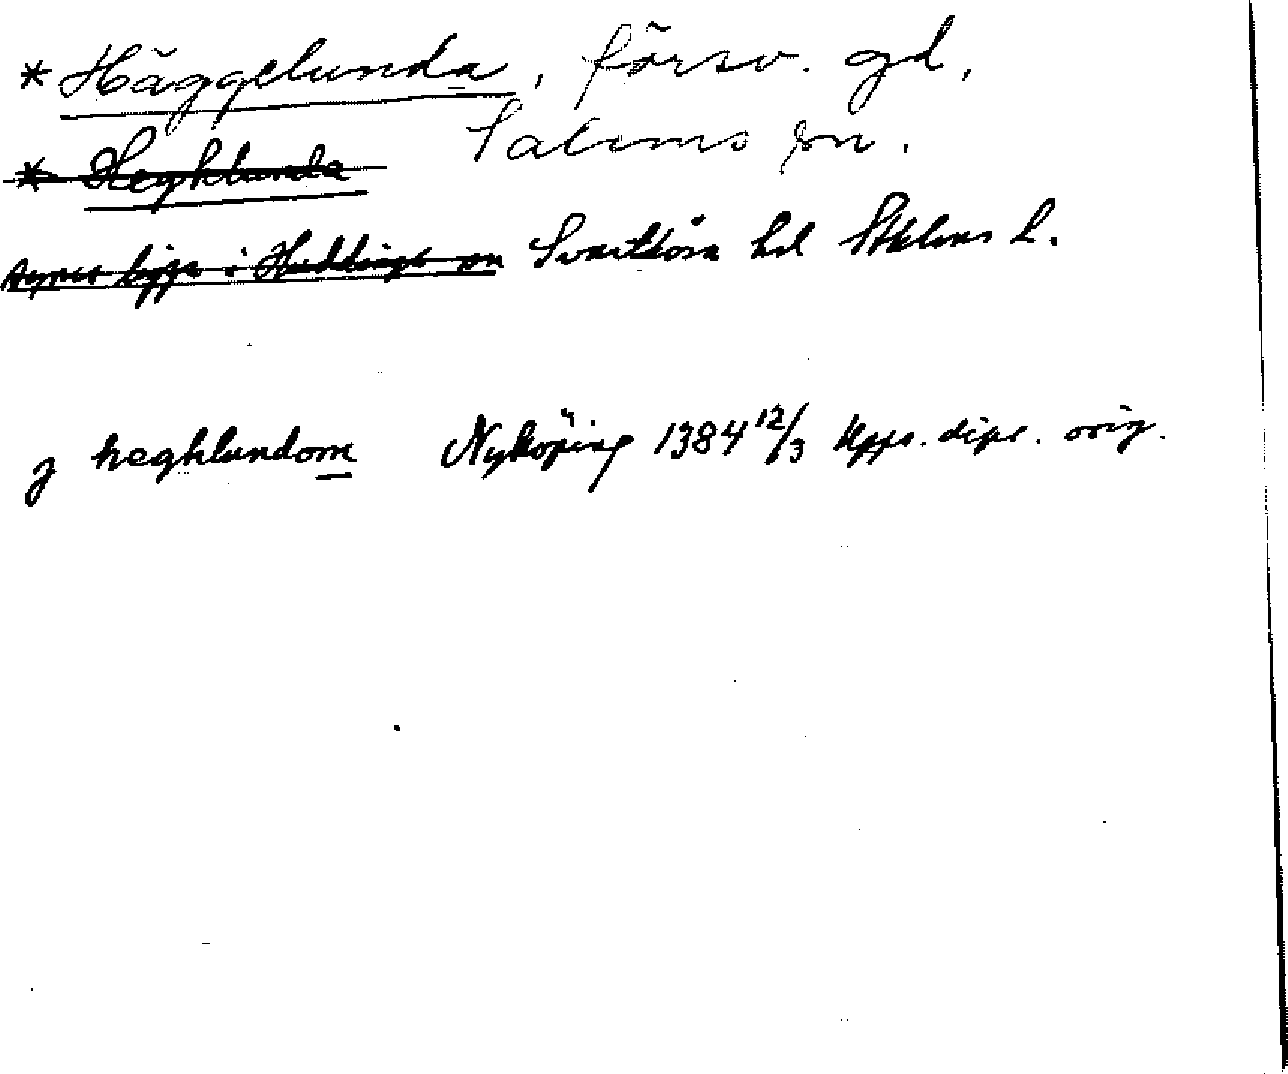 * Häggelunda, försv. gd,
Salems sn.
* Heghlunda
synes ligga i Huddinge sn Svartlösa hd Sthlms L.
j heghlundom Nyköping 1384 12/3 Upps. dipl. orig.